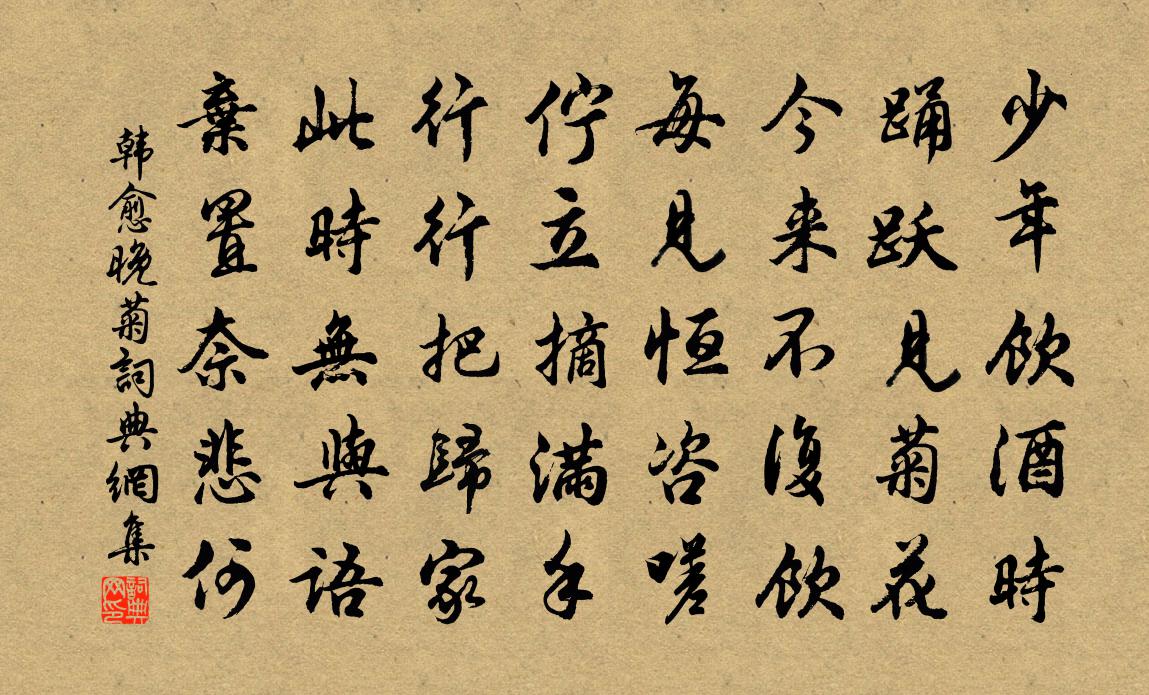 少年飲酒時
踊跃見菊花
今来不復飲
每見恒咨嗟
佇立摘滿手
行行把歸家
此時無與語
棄置奈悲何
韩愈晚菊詞典網集
詞典网印